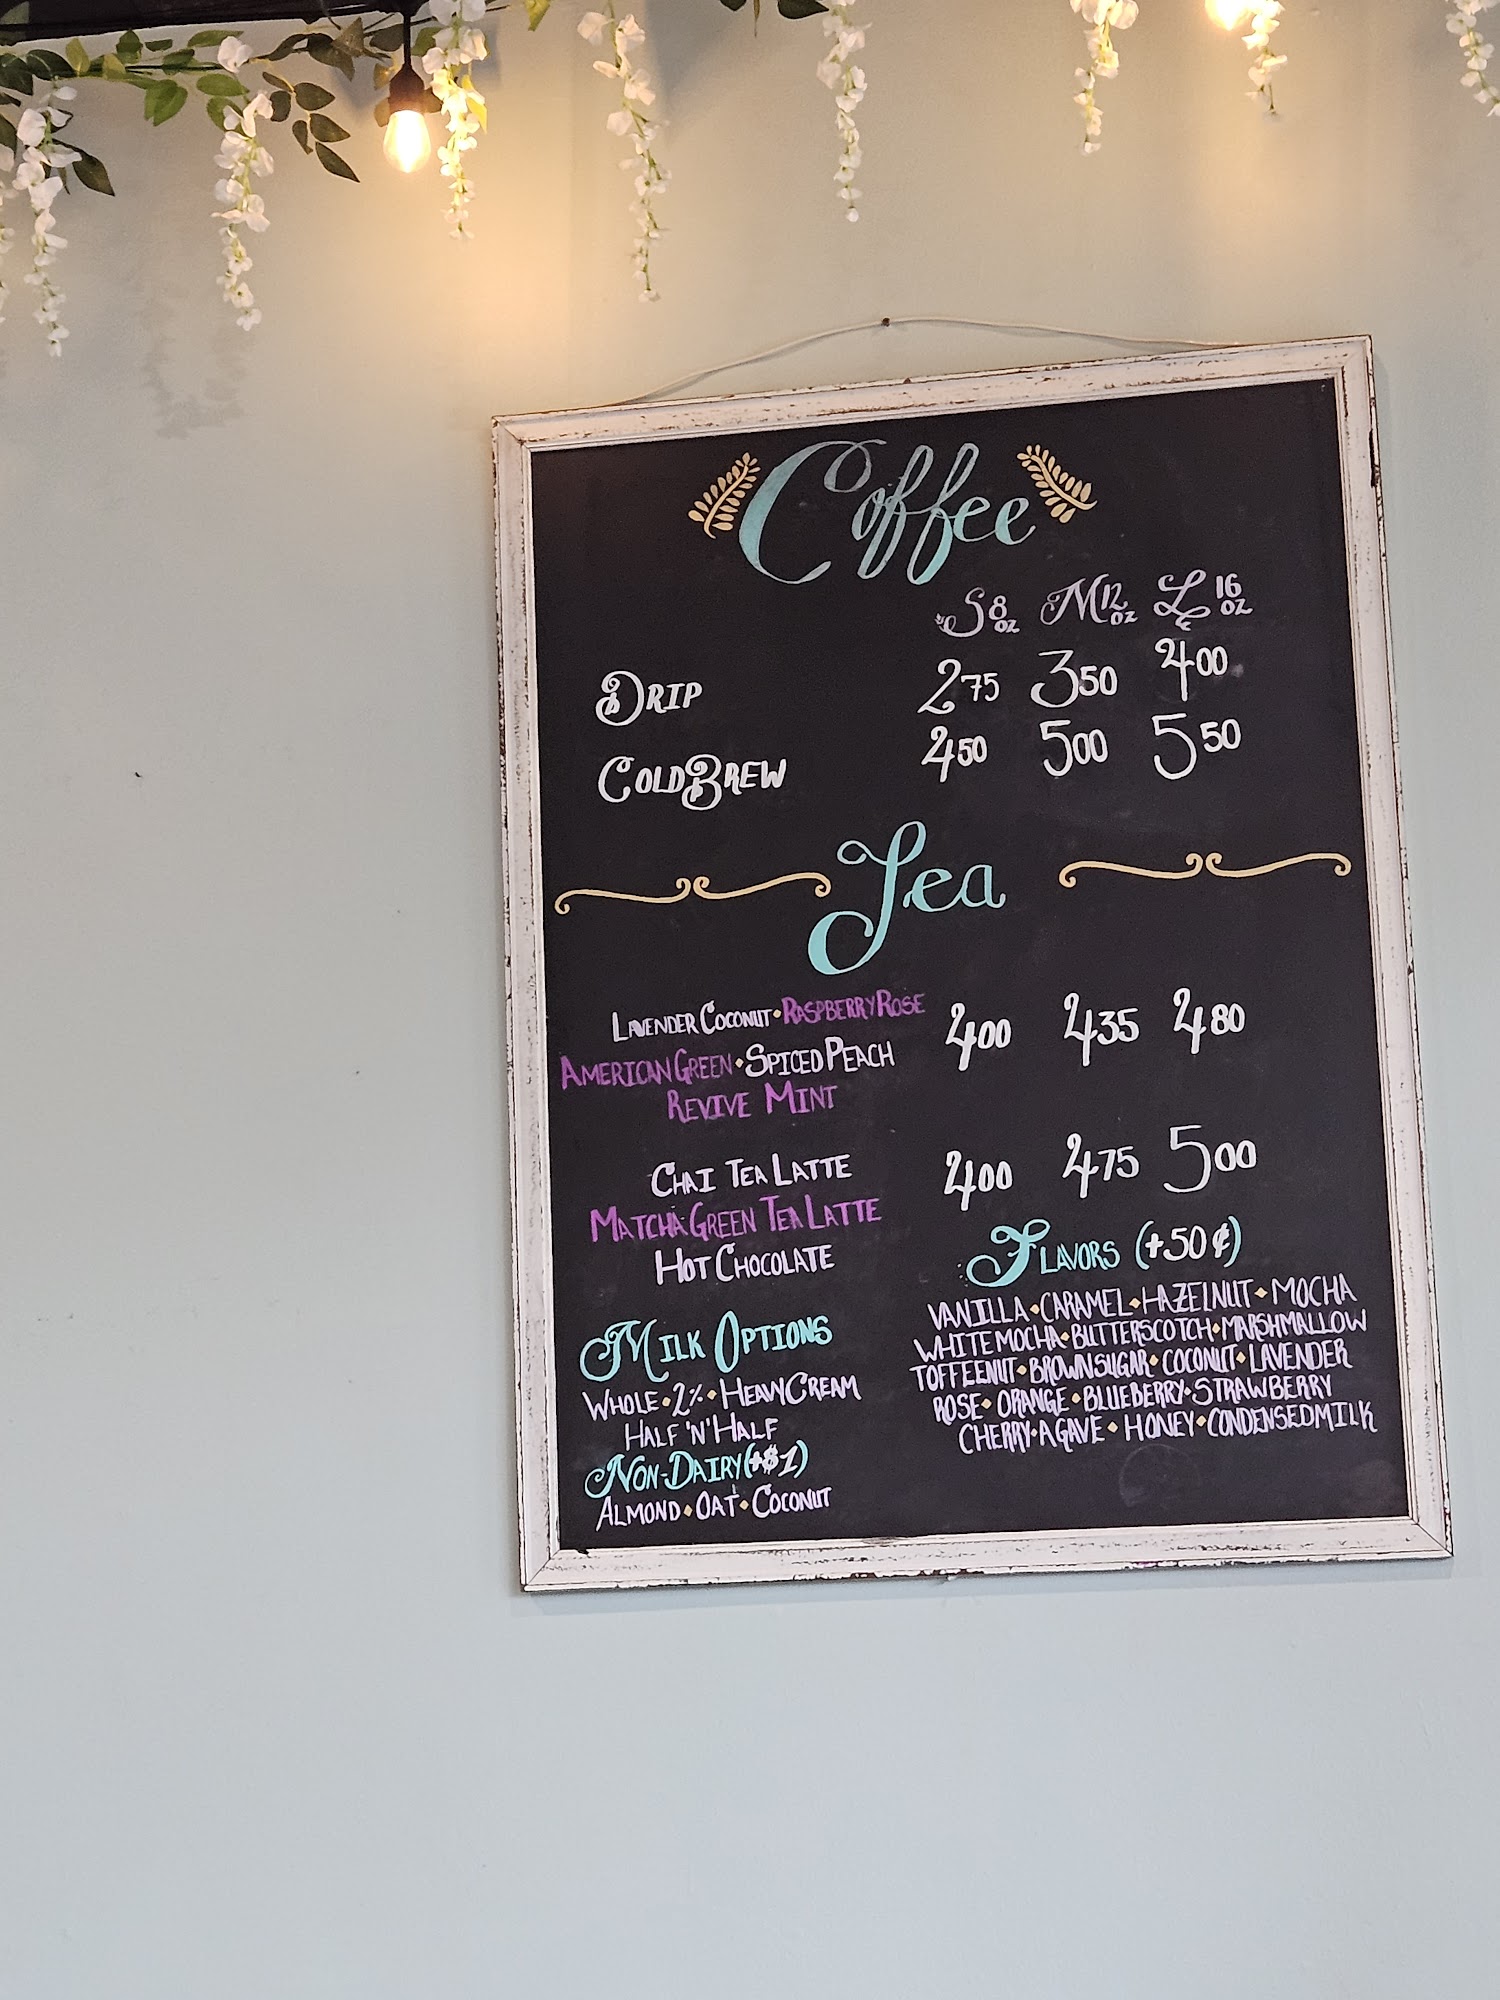 Coffee
S 8 oz M 12 oz L 16 oz
Drip 2 75 3 50 4 00
Cold Brew 4 50 5 00 5 50
Tea
Lavender Coconut • Raspberry Rose 4 00 4 35 4 80
American Green • Spiced Peach
Revive Mint
Chai Tea Latte 4 00 4 75 5 00
Matcha Green Tea Latte
Hot Chocolate
Milk Options
Whole • 2% • Heavy Cream
Half 'N' Half
Non-Dairy (+$1)
Almond • Oat • Coconut
Flavors (+50¢)
Vanilla • Caramel • Hazelnut • Mocha
White Mocha • Butterscotch • Marshmallow
Toffeenut • Brown Sugar • Coconut • Lavender
Rose • Orange • Blueberry • Strawberry
Cherry • Agave • Honey • Condensed Milk